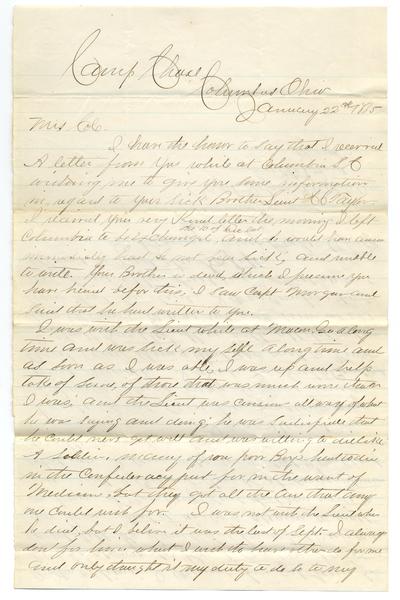 Camp Chase
Columbus Ohio
January 22nd 1865
Mrs Col.
I have the honor to say that I received
A letter from you while at Columbia S C
wishing me to give you some information
in regard to your sick Brother Lieut
I received your very kind letter the morning I left
Columbia to be and I would have
had I not been Sick, and unable
to write. Your Brother is dead, which I presume you
have heard before this, I saw Capt Morgan and
Said that he had written to you.
I was with the Lieut while at Macon, Ga along
time and was Sick my Self along time and
as Soon as I was able, I was up and help
take of Some, of those that was much worse than
I was, and the Lieut was all way of what
he was saying and doing, he was Sattisfied that
he could never get well and was willing to die like
A Soldier, many of our poor Boys has to die
in the Confederacy just for in the want of
Medicine, but they got all the Care that any
one Could wish for. I was not with the Lieut when
he died, but I believe it was the last of Sept. I always
don for him what I wish to have others do for me
and only thought it my duty to do to to my